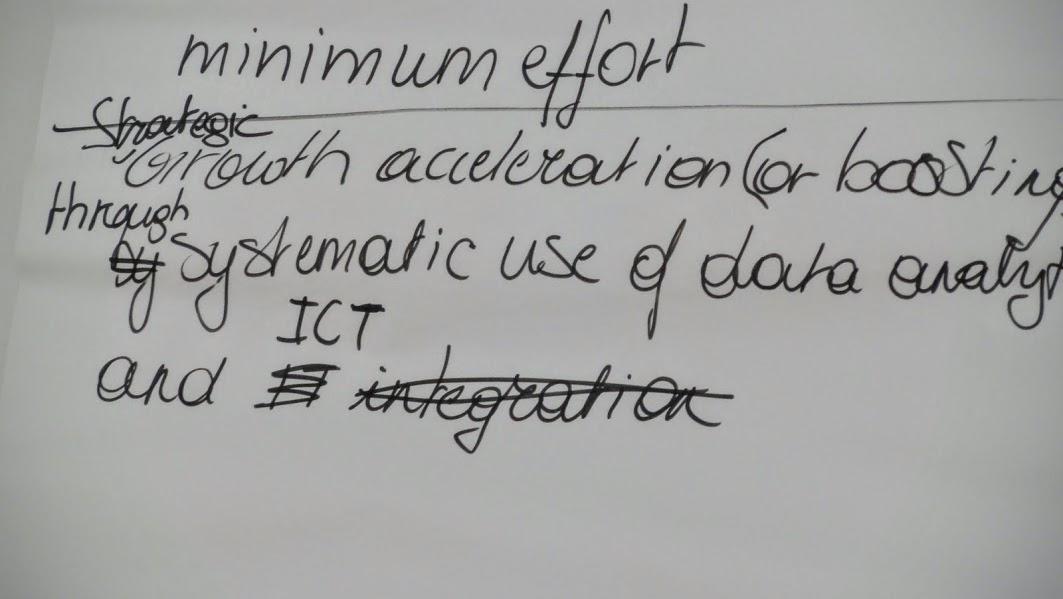 minimum effort
Strategic
Growth acceleration (or boosting
through
by systematic use of data analyt
ICT
and integration